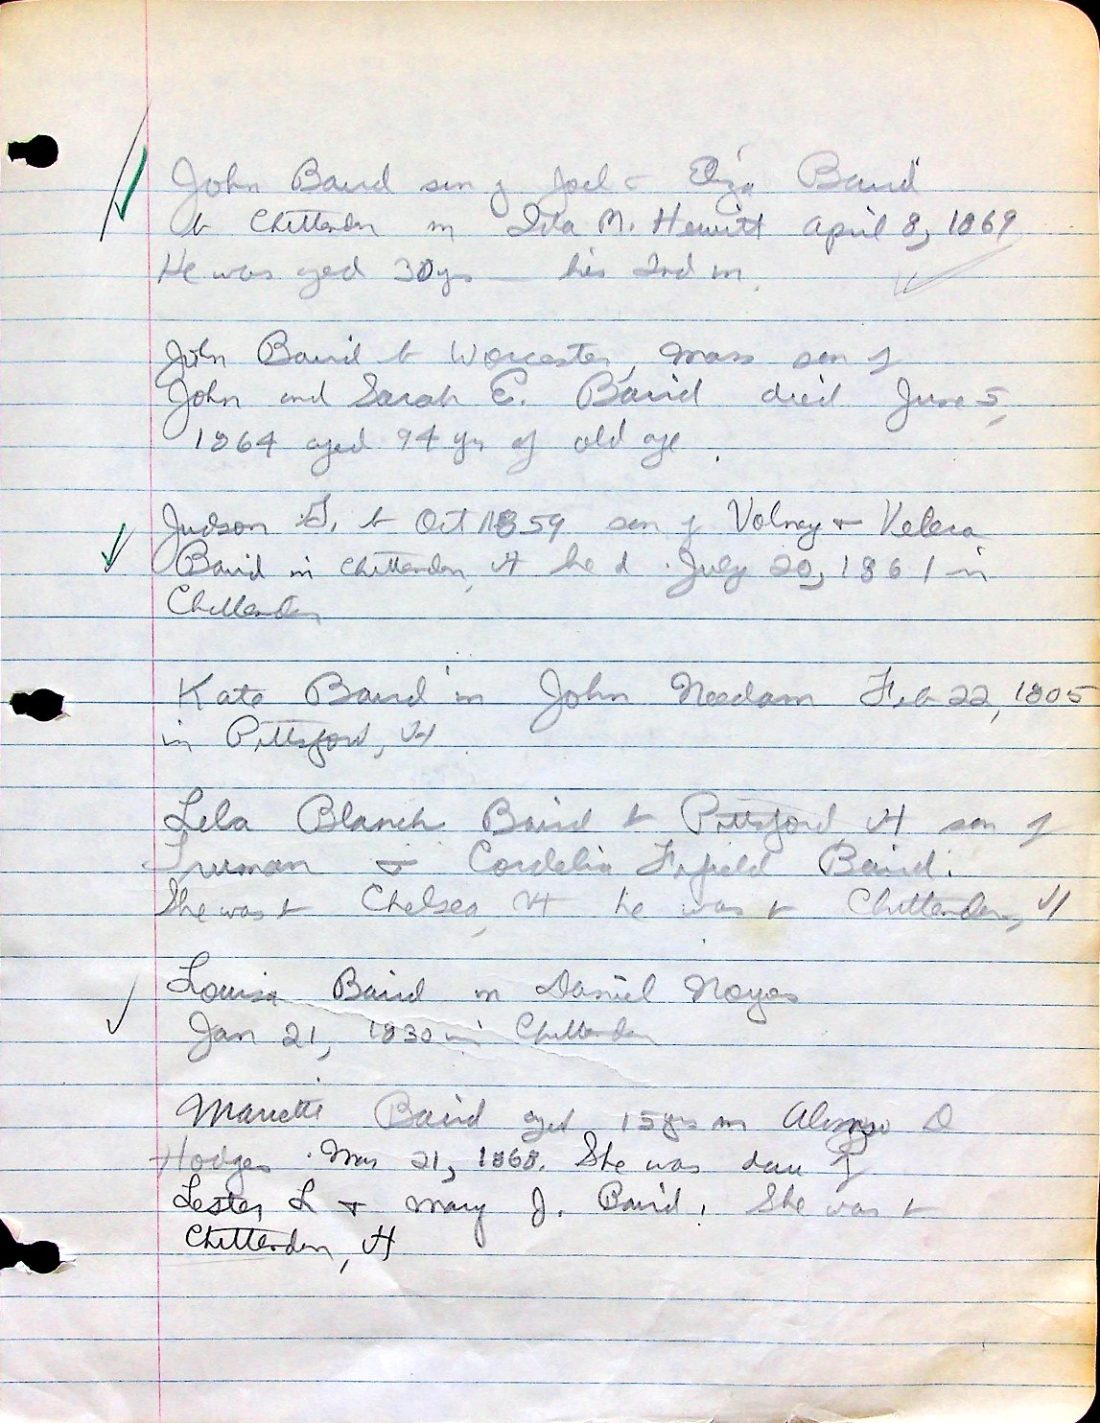 John Baird son of Joel & Eliza Baird
b Chittenden m Ida M. Hewitt April 8, 1869
He was aged 30 yrs — his 2nd m.
John Baird b Worcester, Mass son of
John and Sarah E. Baird died June 5,
1864 aged 94 yrs of old age.
Judson b Oct 1859 son of Volney &
Baird in Chittenden, Vt he d. July 20, 1861 in
Chittenden
Kate Baird m John Needam Feb 22, 1805
in Pittsford, Vt
Lela Blanch Baird b Pittsford Vt son of
Truman & Cordelia Fifield Baird.
She was b Chelsea, Vt he was b Chittenden, Vt
Louisa Baird m Daniel Noyes
Jan 21, 1830 in Chittenden
Mariette Baird aged 15 yrs m Alonzo D
Hodges Mar 21, 1868. She was dau of
Lester L & Mary J. Baird. She was b
Chittenden, Vt